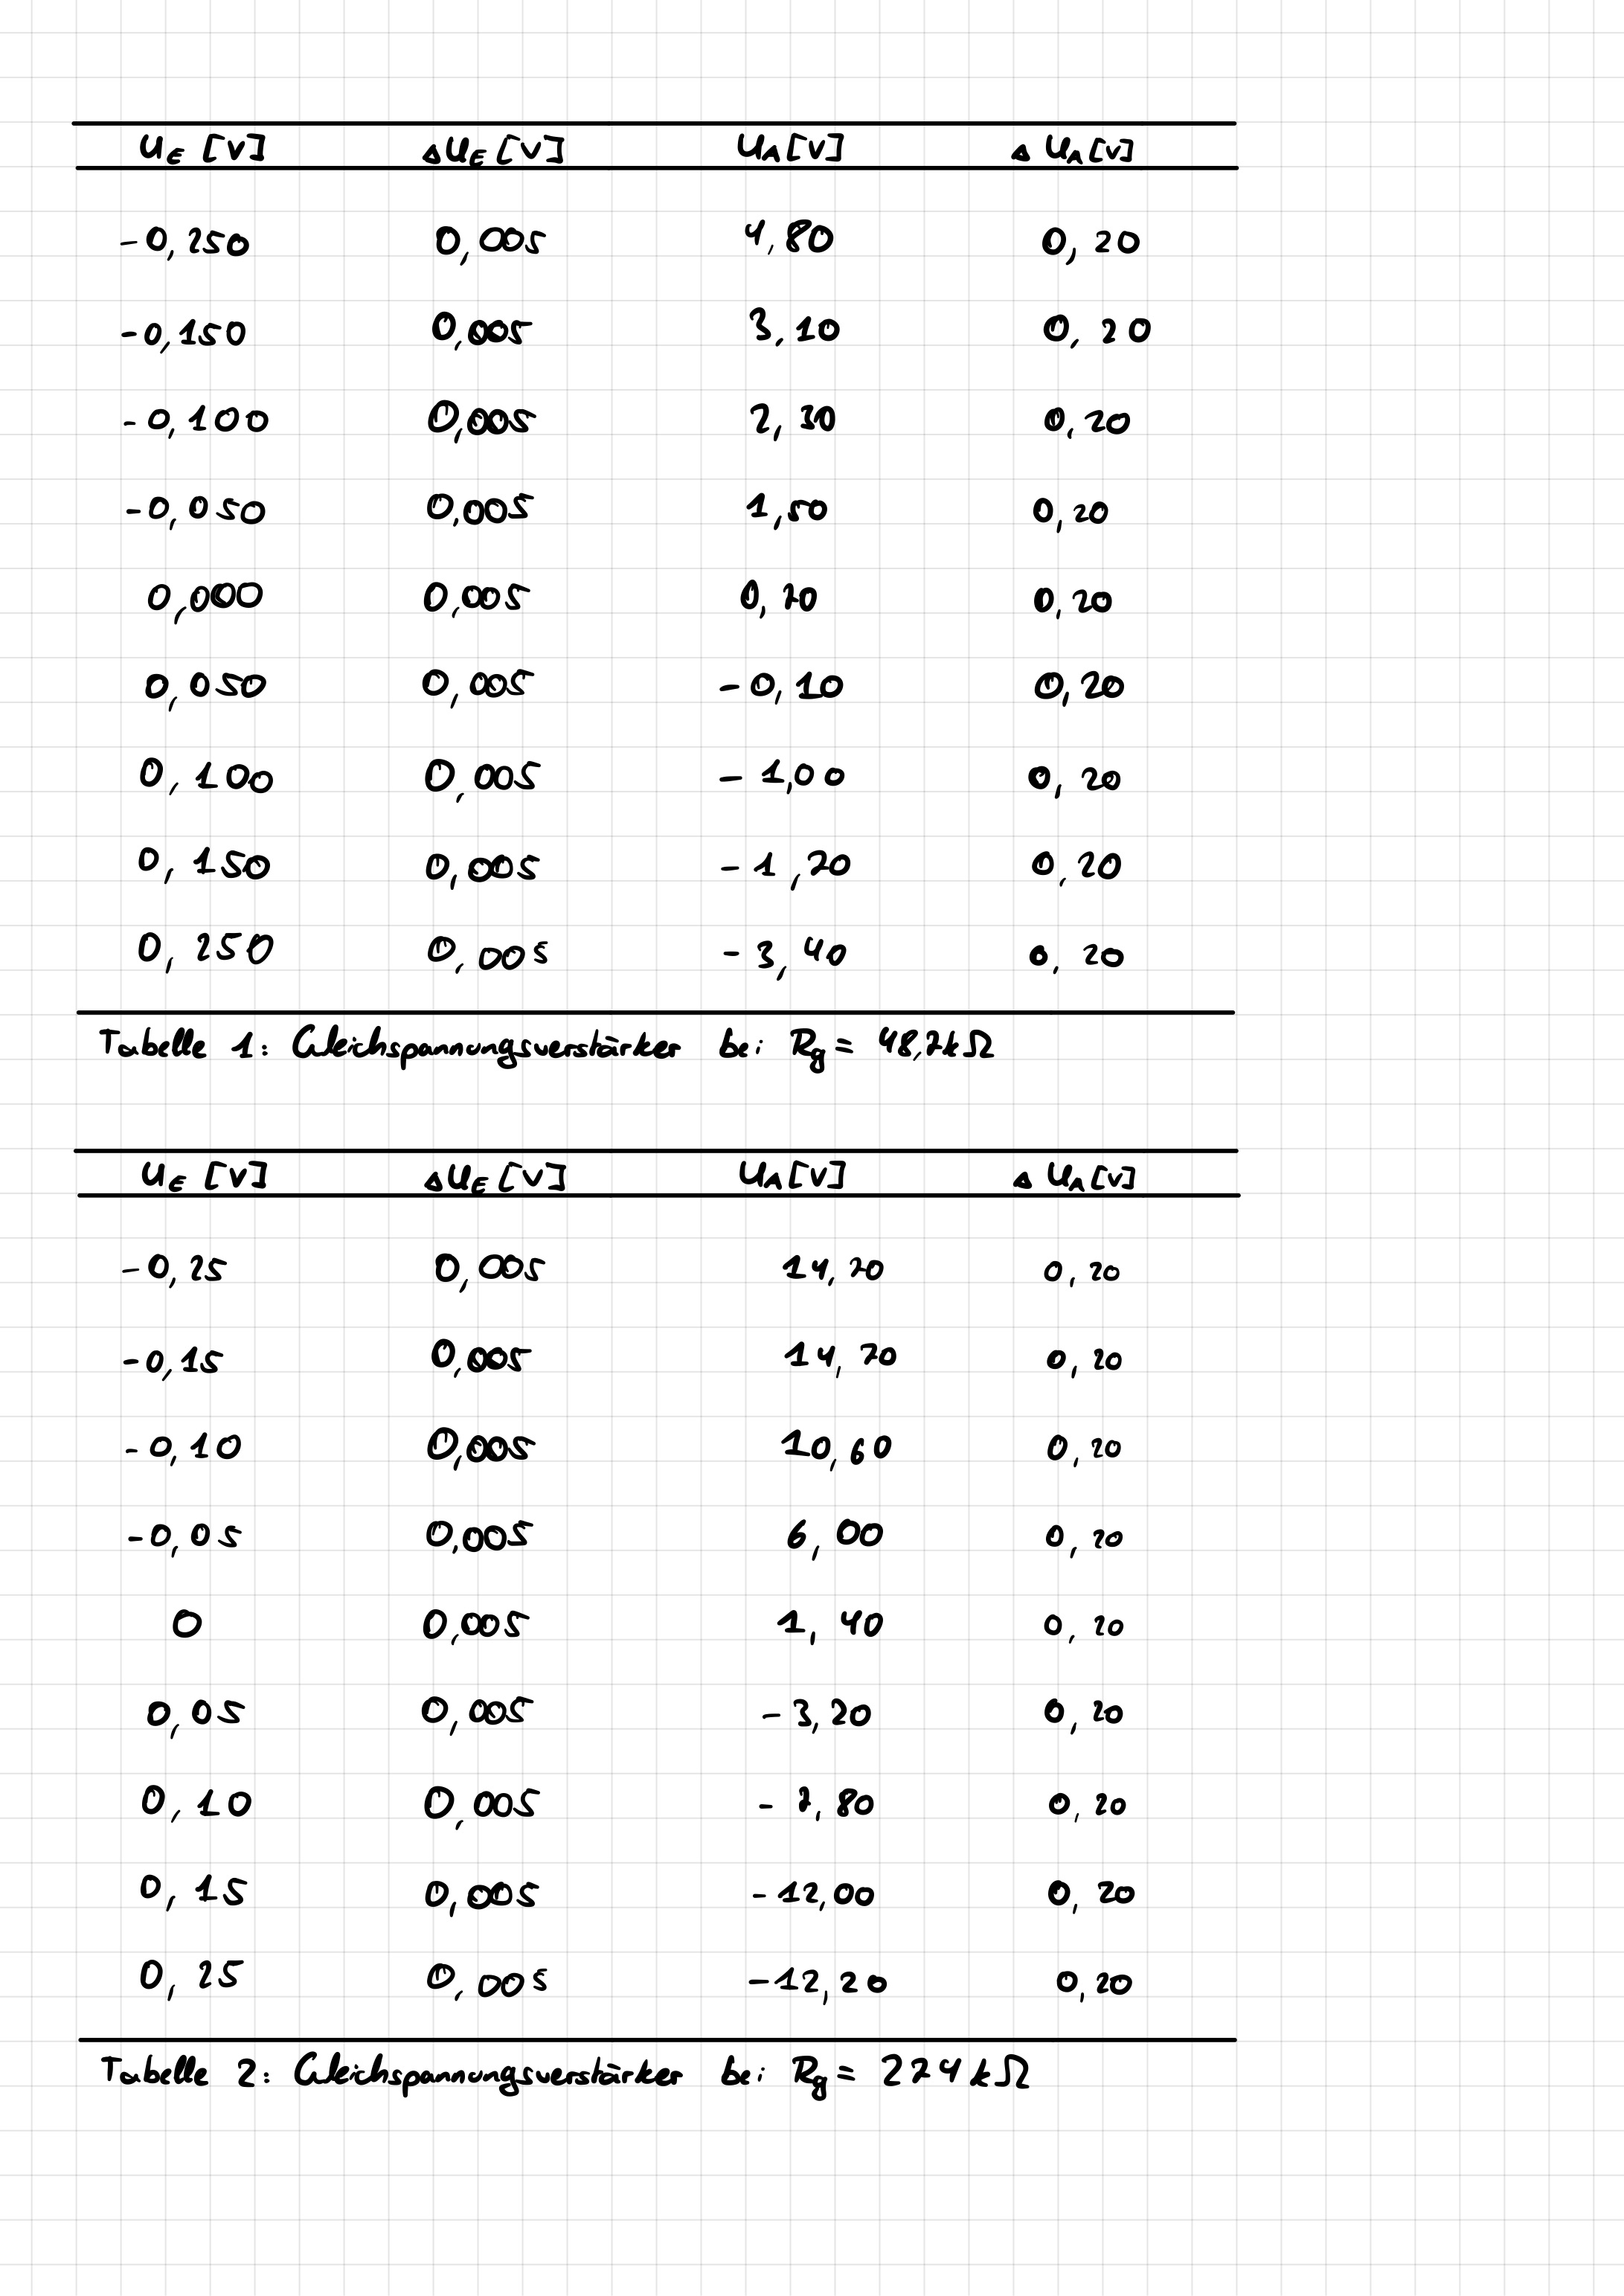 U_E [V] ΔU_E [V] U_A [V] Δ U_A [V]
-0,250 0,005 4,80 0,20
-0,150 0,005 3,10 0,20
-0,100 0,005 2,30 0,20
-0,050 0,005 1,50 0,20
0,000 0,005 0,70 0,20
0,050 0,005 -0,10 0,20
0,100 0,005 -1,00 0,20
0,150 0,005 -1,70 0,20
0,250 0,005 -3,40 0,20
Tabelle 1: Gleichspannungsverstärker bei R_g = 48,7kΩ
U_E [V] ΔU_E [V] U_A [V] Δ U_A [V]
-0,25 0,005 14,70 0,20
-0,15 0,005 14,70 0,20
-0,10 0,005 10,60 0,20
-0,05 0,005 6,00 0,20
0 0,005 1,40 0,20
0,05 0,005 -3,20 0,20
0,10 0,005 -7,80 0,20
0,15 0,005 -12,00 0,20
0,25 0,005 -12,20 0,20
Tabelle 2: Gleichspannungsverstärker bei R_g = 274kΩ